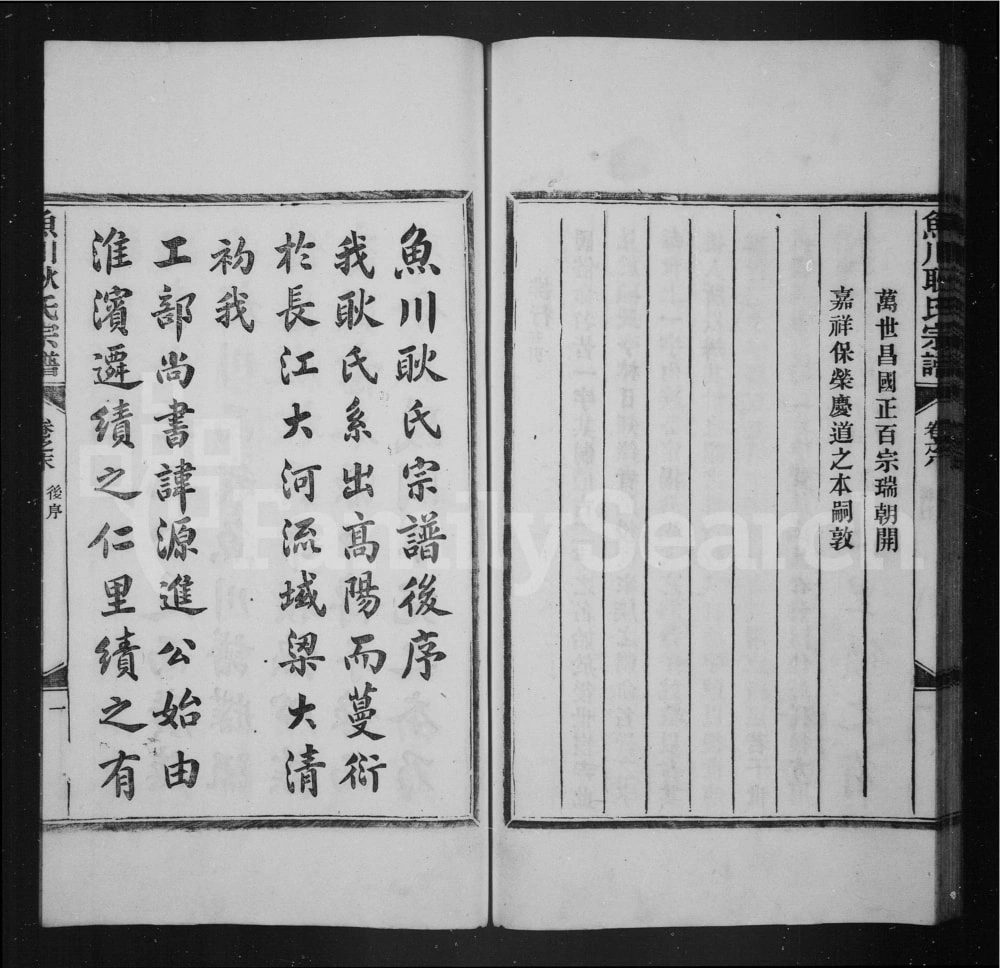 魚川耿氏宗譜
卷之末
萬世昌國正百宗瑞朝開
嘉祥保榮慶道之本嗣敦
魚川耿氏宗譜後序
我耿氏系出高陽而蔓衍
於長江大河流域梁大清
初我
工部尚書諱源進公始由
淮濱遷績之仁里績之有
魚川耿氏宗譜
卷之末
後序
一
FamilySearch